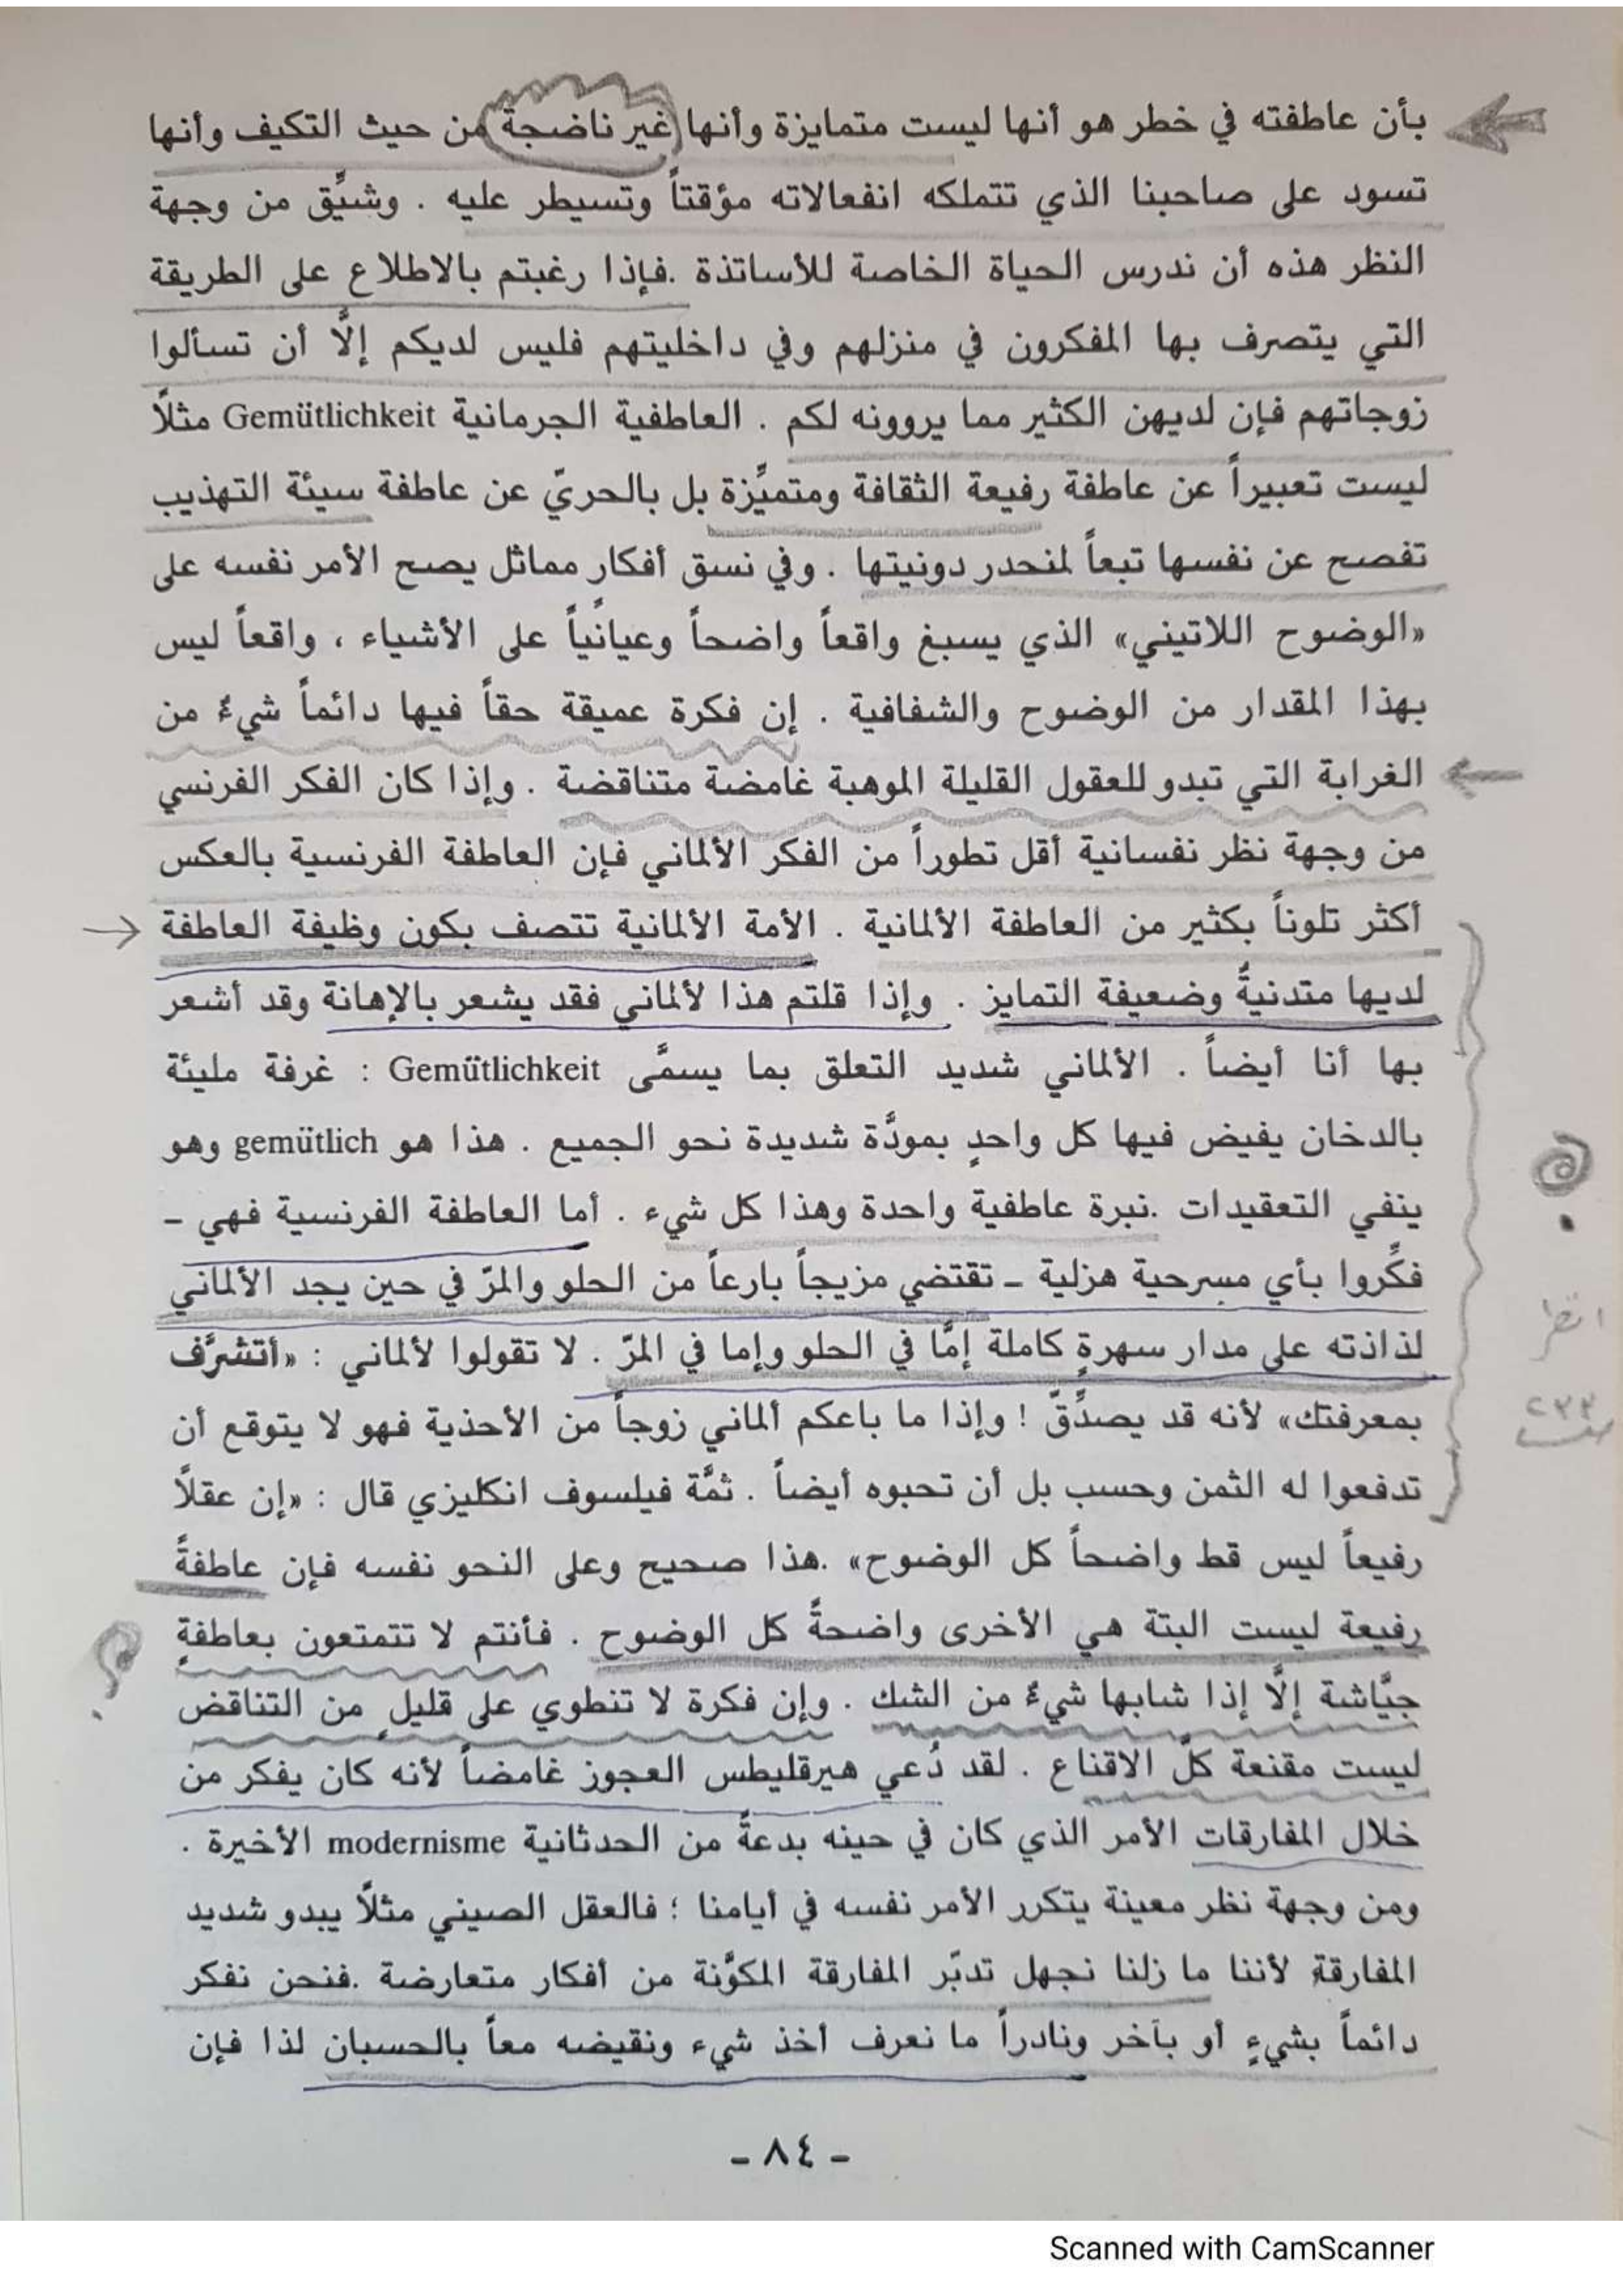 بأن عاطفته في خطر هو أنها ليست متمايزة وأنها غير ناضجة من حيث التكيف وأنها
تسود على صاحبنا الذي تتملكه انفعالاته مؤقتاً وتسيطر عليه . وشيِّق من وجهة
النظر هذه أن ندرس الحياة الخاصة للأساتذة .فإذا رغبتم بالاطلاع على الطريقة
التي يتصرف بها المفكرون في منزلهم وفي داخليتهم فليس لديكم إلَّا أن تسألوا
زوجاتهم فإن لديهن الكثير مما يروونه لكم . العاطفية الجرمانية Gemütlichkeit مثلًا
ليست تعبيراً عن عاطفة رفيعة الثقافة ومتميِّزة بل بالحريّ عن عاطفة سيئة التهذيب
تفصح عن نفسها تبعاً لمنحدر دونيتها . وفي نسق أفكار مماثل يصح الأمر نفسه على
«الوضوح اللاتيني» الذي يسبغ واقعاً واضحاً وعيانياً على الأشياء ، واقعاً ليس
بهذا المقدار من الوضوح والشفافية . إن فكرة عميقة حقاً فيها دائماً شيءٌ من
الغرابة التي تبدو للعقول القليلة الموهبة غامضة متناقضة . وإذا كان الفكر الفرنسي
من وجهة نظر نفسانية أقل تطوراً من الفكر الألماني فإن العاطفة الفرنسية بالعكس
أكثر تلوناً بكثير من العاطفة الألمانية . الأمة الألمانية تتصف بكون وظيفة العاطفة
لديها متدنيةً وضعيفة التمايز . وإذا قلتم هذا لألماني فقد يشعر بالإهانة وقد أشعر
بها أنا أيضاً . الألماني شديد التعلق بما يسمَّى Gemütlichkeit : غرفة مليئة
بالدخان يفيض فيها كل واحدٍ بمودَّة شديدة نحو الجميع . هذا هو gemütlich وهو
ينفي التعقيدات .نبرة عاطفية واحدة وهذا كل شيء . أما العاطفة الفرنسية فهي –
فكِّروا بأي مسرحية هزلية – تقتضي مزيجاً بارعاً من الحلو والمرّ في حين يجد الألماني
لذاذته على مدار سهرةٍ كاملة إمَّا في الحلو وإما في المرّ . لا تقولوا لألماني : «أتشرَّف
بمعرفتك» لأنه قد يصدِّقّ ! وإذا ما باعكم ألماني زوجاً من الأحذية فهو لا يتوقع أن
تدفعوا له الثمن وحسب بل أن تحبوه أيضاً . ثمَّة فيلسوف انكليزي قال : «إن عقلًا
رفيعاً ليس قط واضحاً كل الوضوح» .هذا صحيح وعلى النحو نفسه فإن عاطفةً
رفيعة ليست البتة هي الأخرى واضحةً كل الوضوح . فأنتم لا تتمتعون بعاطفةٍ
جيَّاشة إلَّا إذا شابها شيءٌ من الشك . وإن فكرة لا تنطوي على قليلٍ من التناقض
ليست مقنعة كلَّ الاقناع . لقد دُعي هيرقليطس العجوز غامضاً لأنه كان يفكر من
خلال المفارقات الأمر الذي كان في حينه بدعةً من الحدثانية modernisme الأخيرة .
ومن وجهة نظر معينة يتكرر الأمر نفسه في أيامنا ؛ فالعقل الصيني مثلًا يبدو شديد
المفارقة لأننا ما زلنا نجهل تدبّر المفارقة المكوَّنة من أفكار متعارضة .فنحن نفكر
دائماً بشيءٍ أو بآخر ونادراً ما نعرف أخذ شيء ونقيضه معاً بالحسبان لذا فإن
؟
انظر
؟
- ٨٤ -
Scanned with CamScanner